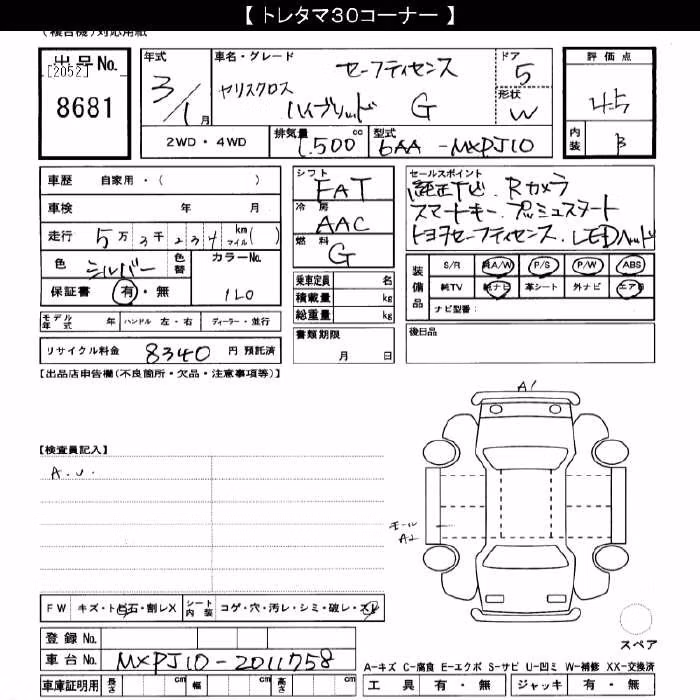 【 トレタマ30コーナー 】
(複合機)対応用紙
出品No.
[2052]
8681
年式
3/1月
車名・グレード
ヤリスクロス セーフティセンス
ハイブリッド G
ドア
5
形状
W
評価点
4.5
内装
B
2WD・4WD
排気量 1,500 cc
型式 6AA-MXPJ10
車歴 自家用・( )
車検 年 月
走行 5万3千234 km マイル( )
色 シルバー 色替
カラーNo.
1L0
保証書 有・無
モデル年式 年 ハンドル 左・右 ディーラー・並行
リサイクル料金 8340 円 預託済
シフト
FAT
冷房
AAC
燃料
G
乗車定員 名
積載量 kg
総重量 kg
書類期限
月 日
セールスポイント
純正TV. Rカメラ
スマートキー. プッシュスタート
トヨタセーフティセンス. LEDヘッド
装備品
S/R 純A/W P/S P/W ABS
純TV 純ナビ 革シート 外ナビ エアB
ナビ型番:
後日品
【出品店申告欄(不良箇所・欠品・注意事項等)】
【検査員記入】
A.U.
A1
モール
A2
FW キズ・ト飛石・割レX
シート内装 コゲ・穴・汚レ・シミ・破レ・スレ
登録No.
車台No. MXPJ10-2011758
車庫証明用 長さ cm 幅 cm 高さ cm
スペア
A-キズ C-腐食 E-エクボ S-サビ U-凹ミ W-補修 XX-交換済
工具 有・無 ジャッキ 有・無